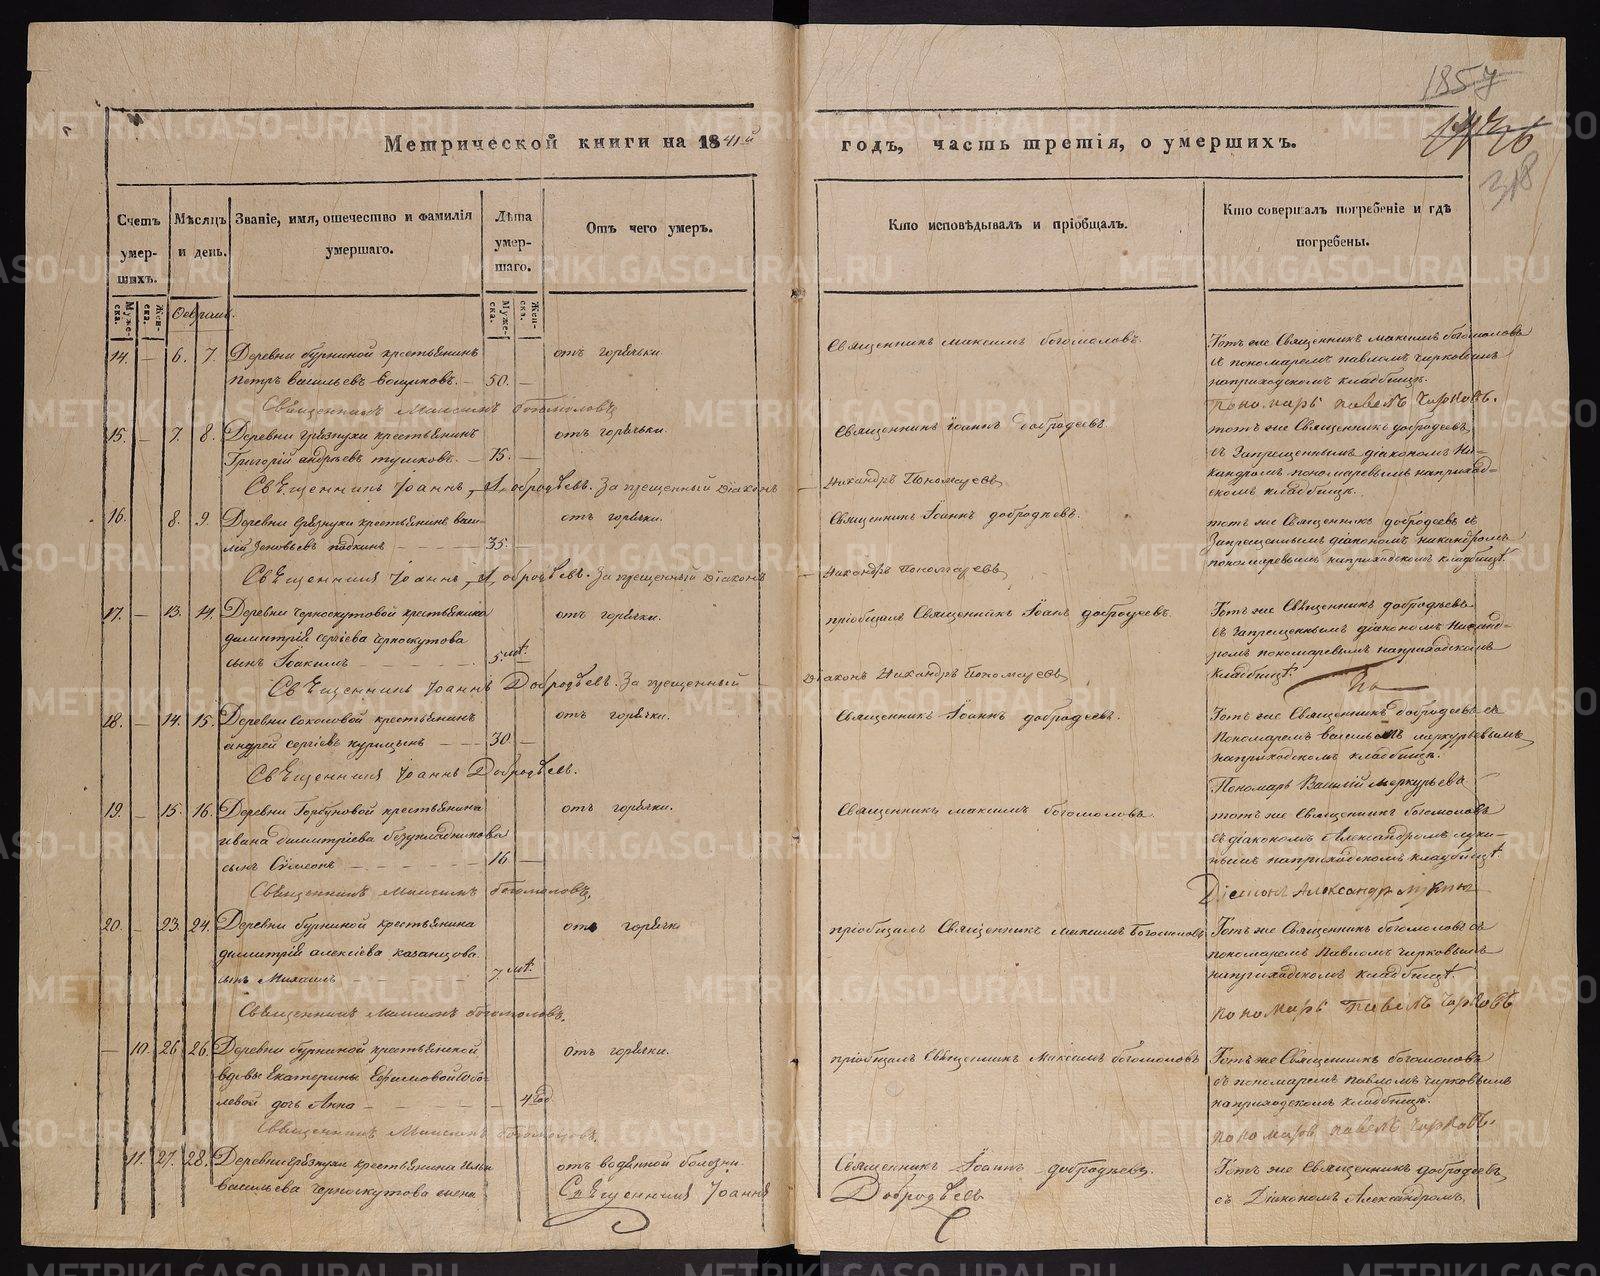 1857
318
Метрической книги на 1841й
годъ, часть третія, о умершихъ.
Счетъ умер-шихъ.
Мѣсяцъ и день.
Званіе, имя, отечество и фамилія умершаго.
Лѣта умер-шаго.
Отъ чего умеръ.
Кто исповѣдывалъ и пріобщалъ.
Кто совершалъ погребеніе и гдѣ погребены.
Муже-ска.
Жен-ска.
Муже-ска.
Жен-ска.
14. — 6. 7. Деревни бурниной крестьянинъ
Петръ Васильевъ — 50. —
отъ горячки
Священникъ Максимъ Богомоловъ.
Тотъ же Священникъ Максимъ Богомоловъ
съ пономаремъ Павломъ Чирковымъ
наприходскомъ кладбищѣ.
Священникъ Максимъ Богомоловъ
Пономарь Павелъ Чирковъ.
15. — 7. 8. Деревни грязнухи крестьянинъ
Григорій Андреевъ — 75. —
отъ горячки.
Священникъ Іоаннъ Добродеевъ.
тотъ же Священникъ Добродеевъ
съ Запрещеннымъ діакономъ Ни-
кандромъ Пономаревымъ наприход-
скомъ кладбищѣ.
Священникъ Іоаннъ Добродѣевъ. Запрещенный діаконъ Никандръ Пономаревъ
16. 8. 9. Деревни грязнухи крестьянинъ Васи-
лій Зеновьевъ — 35.
отъ горячки.
Священникъ Іоаннъ Добродеевъ.
тотъ же Священникъ Добродеевъ съ
Запрещеннымъ діакономъ Никандромъ
Пономаревымъ наприходскомъ кладбищѣ.
Священникъ Іоаннъ Добродѣевъ. Запрещенный діаконъ Никандръ Пономаревъ
17. — 13. 14. Деревни Черноскутовой крестьянина
Димитрія Сергіева Черноскутова
сынъ Іоакимъ — 5. лѣт.
отъ горячки.
пріобщалъ Священникъ Іоаннъ Добродеевъ.
Тотъ же Священникъ Добродѣевъ
съ Запрещеннымъ діакономъ Никанд-
ромъ Пономаревымъ наприходскомъ
кладбищѣ.
Священникъ Іоаннъ Добродѣевъ. Запрещенный діаконъ Никандръ Пономаревъ
18. — 14. 15. Деревни Соколовой крестьянинъ
Андрей Сергіевъ Курицынъ — 30. —
отъ горячки.
Священникъ Іоаннъ Добродеевъ.
Тотъ же Священникъ Добродѣевъ съ
Пономаремъ Васильемъ Меркурьевымъ
наприходскомъ кладбищѣ.
Священникъ Іоаннъ Добродѣевъ.
Пономарь Василій Меркурьевъ
19. — 15. 16. Деревни Горбуновой крестьянина
Ивана Димитріева Безукладникова
сынъ Сѵмеонъ — 16. —
отъ горячки.
Священникъ Максимъ Богомоловъ.
тотъ же Священникъ Богомоловъ
съ діакономъ Александромъ Луки-
нымъ наприходскомъ кладбищѣ.
Священникъ Максимъ Богомоловъ.
Діаконъ Александръ Лукинъ
20. — 23. 24. Деревни бурниной крестьянина
Димитрія Алексіева Казанцова
сынъ Михаилъ — 7. лѣт.
отъ горячки
пріобщалъ Священникъ Максимъ Богомоловъ
Тотъ же Священникъ Богомоловъ съ
пономаремъ Павломъ Чирковымъ
наприходскомъ кладбищѣ.
Священникъ Максимъ Богомоловъ.
Пономарь Павелъ Чирковъ
— 10. 26. 26. Деревни бурниной крестьянской
вдовы Екатерины Ефимовой
дочь Анна — 4 год.
отъ горячки.
пріобщалъ Священникъ Максимъ Богомоловъ
Тотъ же Священникъ Богомоловъ
съ пономаремъ Павломъ Чирковымъ
наприходскомъ кладбищѣ.
Священникъ Максимъ Богомоловъ.
Пономарь Павелъ Чирковъ.
11. 27. 28. Деревни грязнухи крестьянина Ильи
Васильева Черноскутова жена
отъ водяной болезни
Священникъ Іоаннъ Добродеевъ.
Тотъ же Священникъ Добродеевъ
съ Діакономъ Александромъ
Священникъ Іоаннъ Добродѣевъ
METRIKI.GASO-URAL.RU